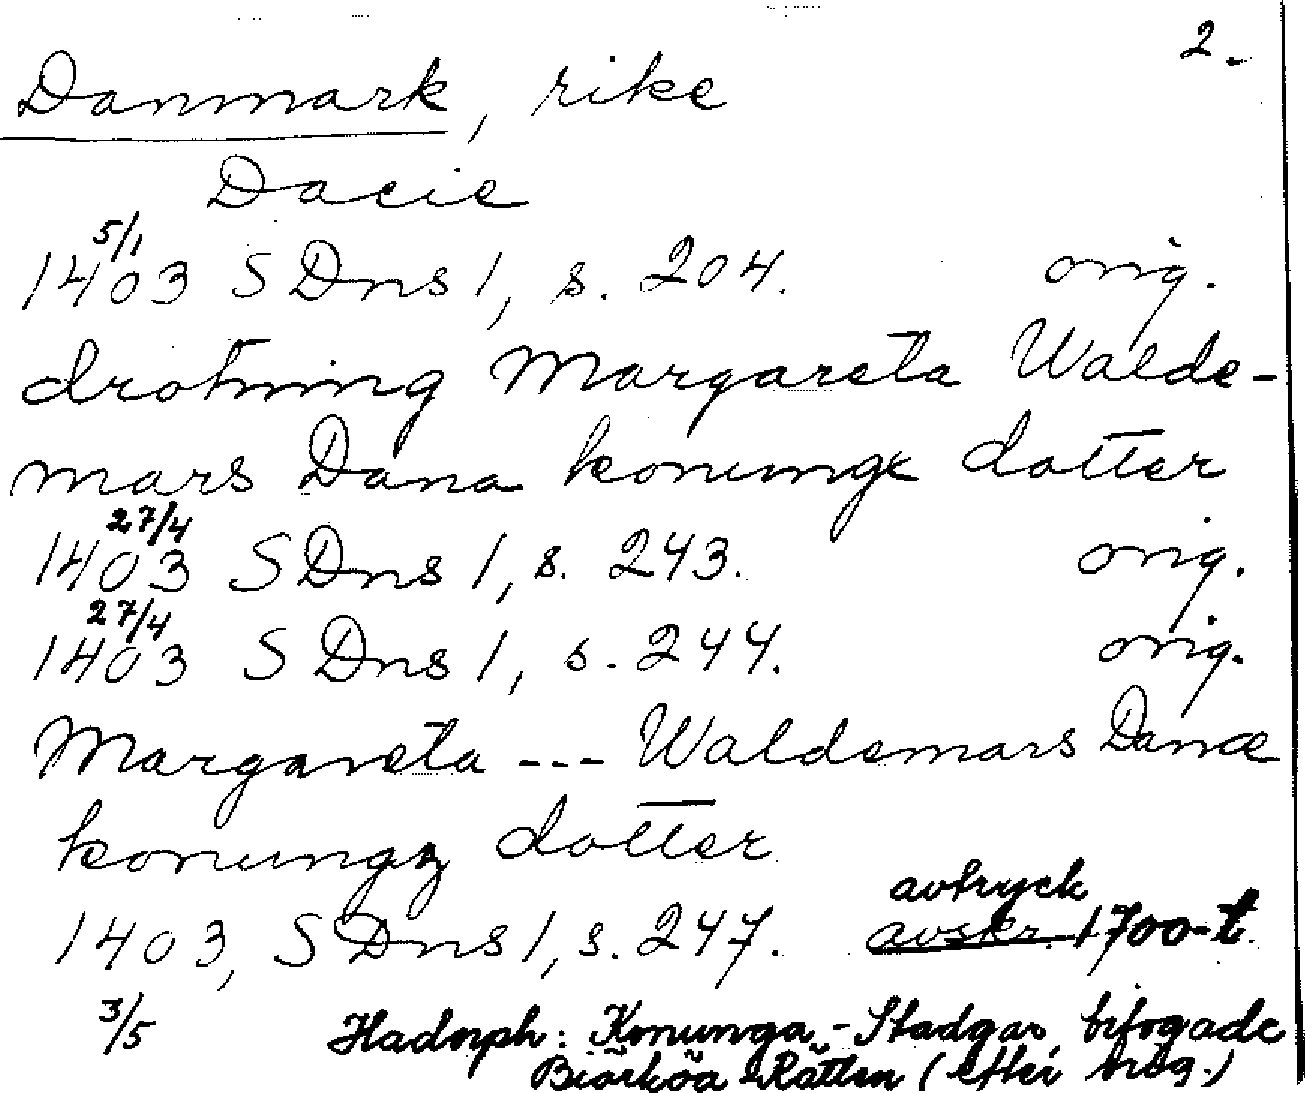 2.
Danmark, rike
Dacie
5/1
1403 SDns 1, s. 204. orig.
drotning Margareta Walde-
mars Dana konungx dotter
27/4
1403 SDns 1, s. 243. orig.
27/4
1403 SDns 1, s. 244. orig.
Margareta --- Waldemars Danæ
konungz dotter
avtryck
1403, SDns 1, s. 247. avskr. 1700-t.
3/5 Hadorph: Konunga-Stadgar bifogade
Biärköa Rätten (efter orig.)